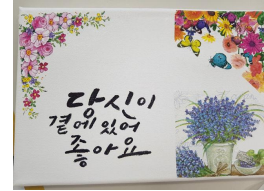 당신이
곁에 있어
좋아요